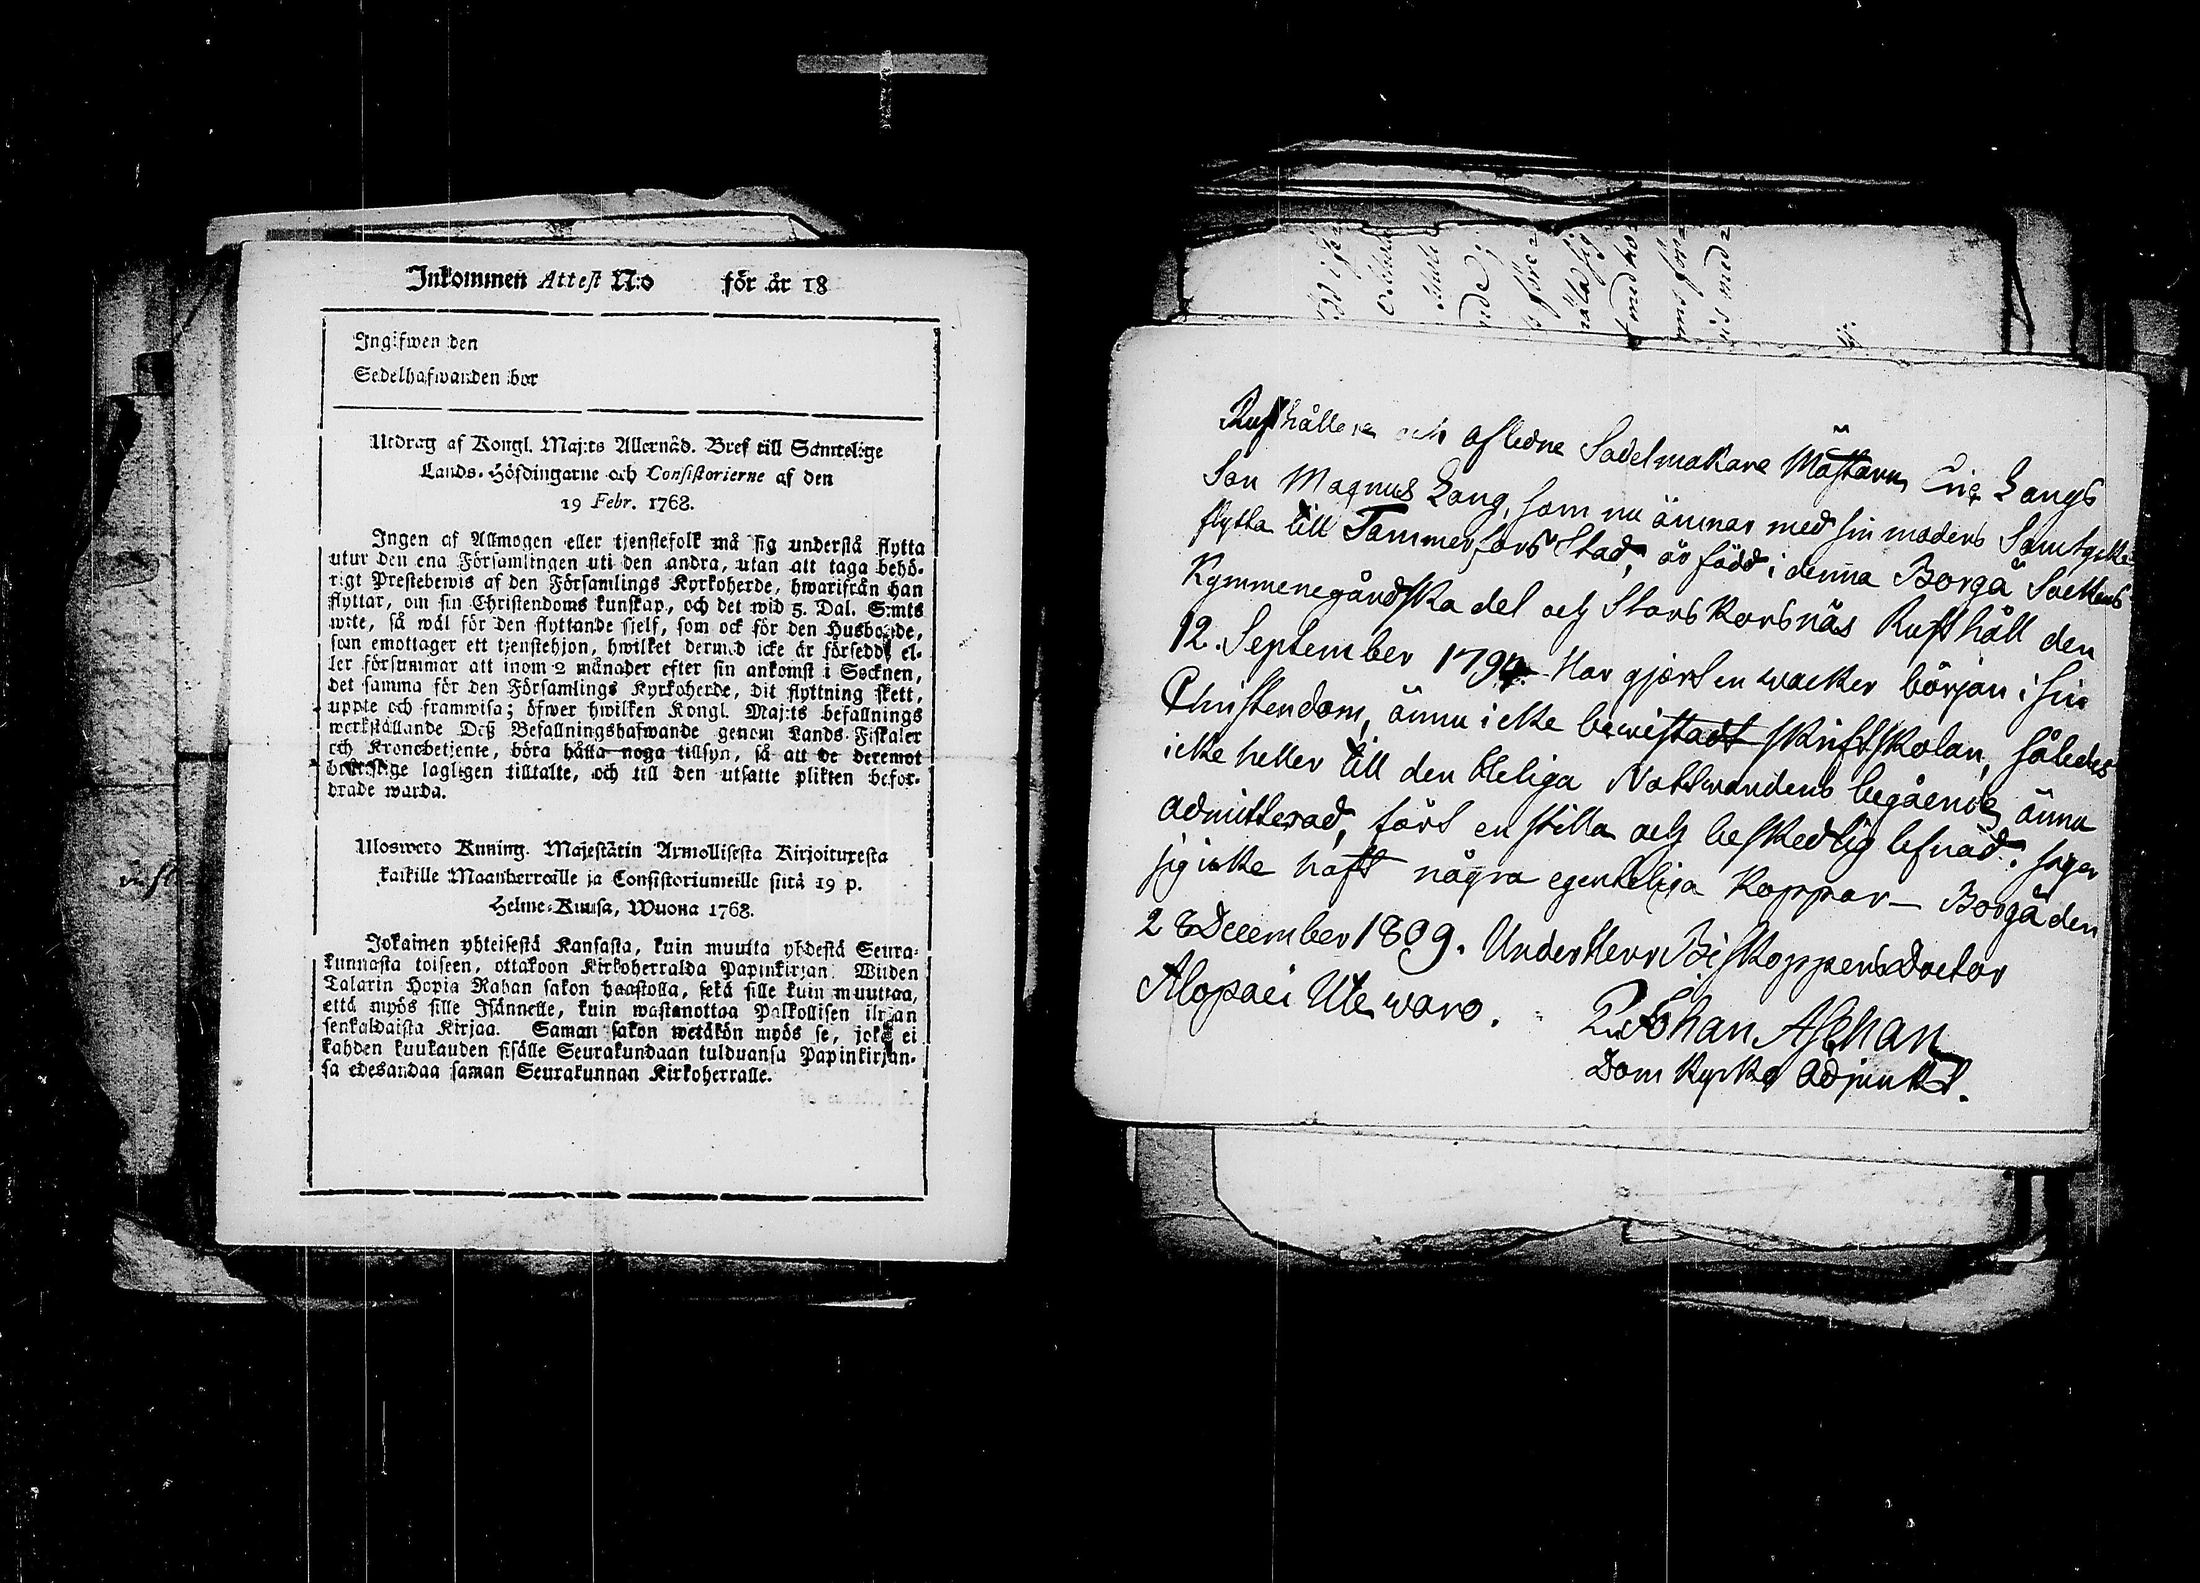 Inkommen Attest N:o för år 18
Ingifwen den
Sedelhafwanden bor
Utdrag af Kongl. Maj:ts Allernåd. Bref till Samtelige
Lands-Höfdingarne och Consistorierne af den
19 Febr. 1768.
Ingen af Allmogen eller tjenstefolk må sig understå flytta
utur den ena Församlingen uti den andra, utan att taga behö-
rigt Prestebewis af den Församlings Kyrkoherde, hwarifrån han
flyttar, om sin Christendoms kunskap, och det wid 5. Dal. S:mts
wite, så wäl för den flyttande sjelf, som ock för den Husbonde,
som emottager ett tjenstehjon, hwilket dermed icke är försedd, el-
ler försummar att inom 2 månader efter sin ankomst i Socknen,
det samma för den Församlings Kyrkoherde, dit flyttning skett,
uppte och framwisa; öfwer hwilken Kongl. Maj:ts befallnings
werkställande Deß Befallningshafwande genom Lands-Fiskaler
och Kronobetjente, böra hålla noga tillsyn, så att de deremot
brottslige lagligen tilltalte, och till den utsatte plikten befor-
drade warda.
Ulosweto Kuning. Majestätin Armollisesta Kirjoituxesta
kaikille Maanherroille ja Consistoriumeille siitä 19 p.
Helme-Kuusa, Wuona 1768.
Jokainen yhteisestä Kansasta, kuin muutta yhdestä Seura-
kunnasta toiseen, ottakoon Kirkoherralda Papinkirjan. Wiiden
Talarin Hopia Rahan sakon haastolla, sekä sille kuin muuttaa,
että myös sille Isännelle, kuin wastanottaa Palkollisen ilman
senkaldaista Kirjaa. Saman sakon wetäkön myös se, joka ei
kahden kuukauden sisälle Seurakundaan tulduansa Papinkirjan-
sa edesandaa saman Seurakunnan Kirkoherralle.
Rusthållare och afledne Sadelmakare Mästarn Eric Langs
Son Magnus Lang, som nu ämnar med sin moders Samtycke
flytta till Tammerfors Stad, är född i denna Borgå Sockens
Kymmenegårdska del och Stors Korsnäs Rusthåll den
12. September 179 Har gjort en wacker början i sin
Christendom, ännu icke bewistadt skriftskolan, således
icke heller till den Heliga Nattwardens begående ännu
admitterad, fört en stilla och beskedlig lefnad. Säger
sig icke haft några egenteliga Koppor – Borgå den
28 December 1809. Under Herr Biskoppens Doctor
Alopæi Ute waro.
Johan Aschan
Dom Kyrko Adjunkt.